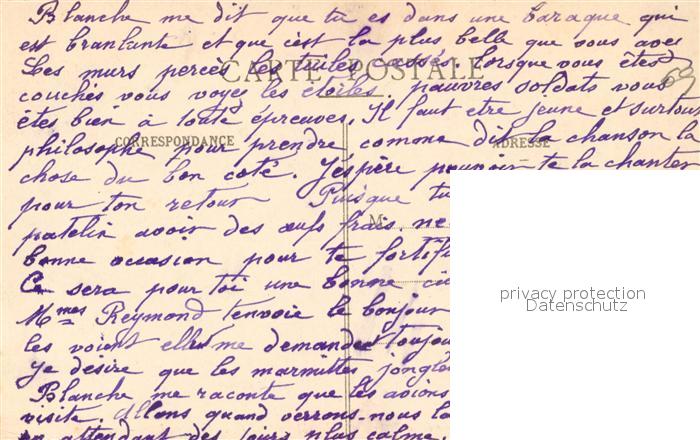 Blanche me dit que tu es dans une baraque qui
est branlante et que c'est la plus belle que vous avez
Les murs percés les tuiles cassés. Lorsque vous êtes
CARTE POSTALE
couchés vous voyez les étoiles. pauvres soldats vous
êtes bien à toute épreuves. Il faut etre jeune et surtout
philosophe pour prendre comme dit la chanson la
CORRESPONDANCE
ADRESSE
chose du bon coté. J'espère pouvoir te la chanter
pour ton retour Puisque tu
patelin avoir des œufs frais. ne
M
bonne occasion pour te fortifi
Ce sera pour toi une bonne
Mmes Reymond t'envoie le bonjour
les voient elle me demande toujou
Je désire que les marmittes jongle
Blanche me raconte que les avions
visite. Allons quand verrons-nous la
en attendant des jours plus calme.
privacy protection
Datenschutz